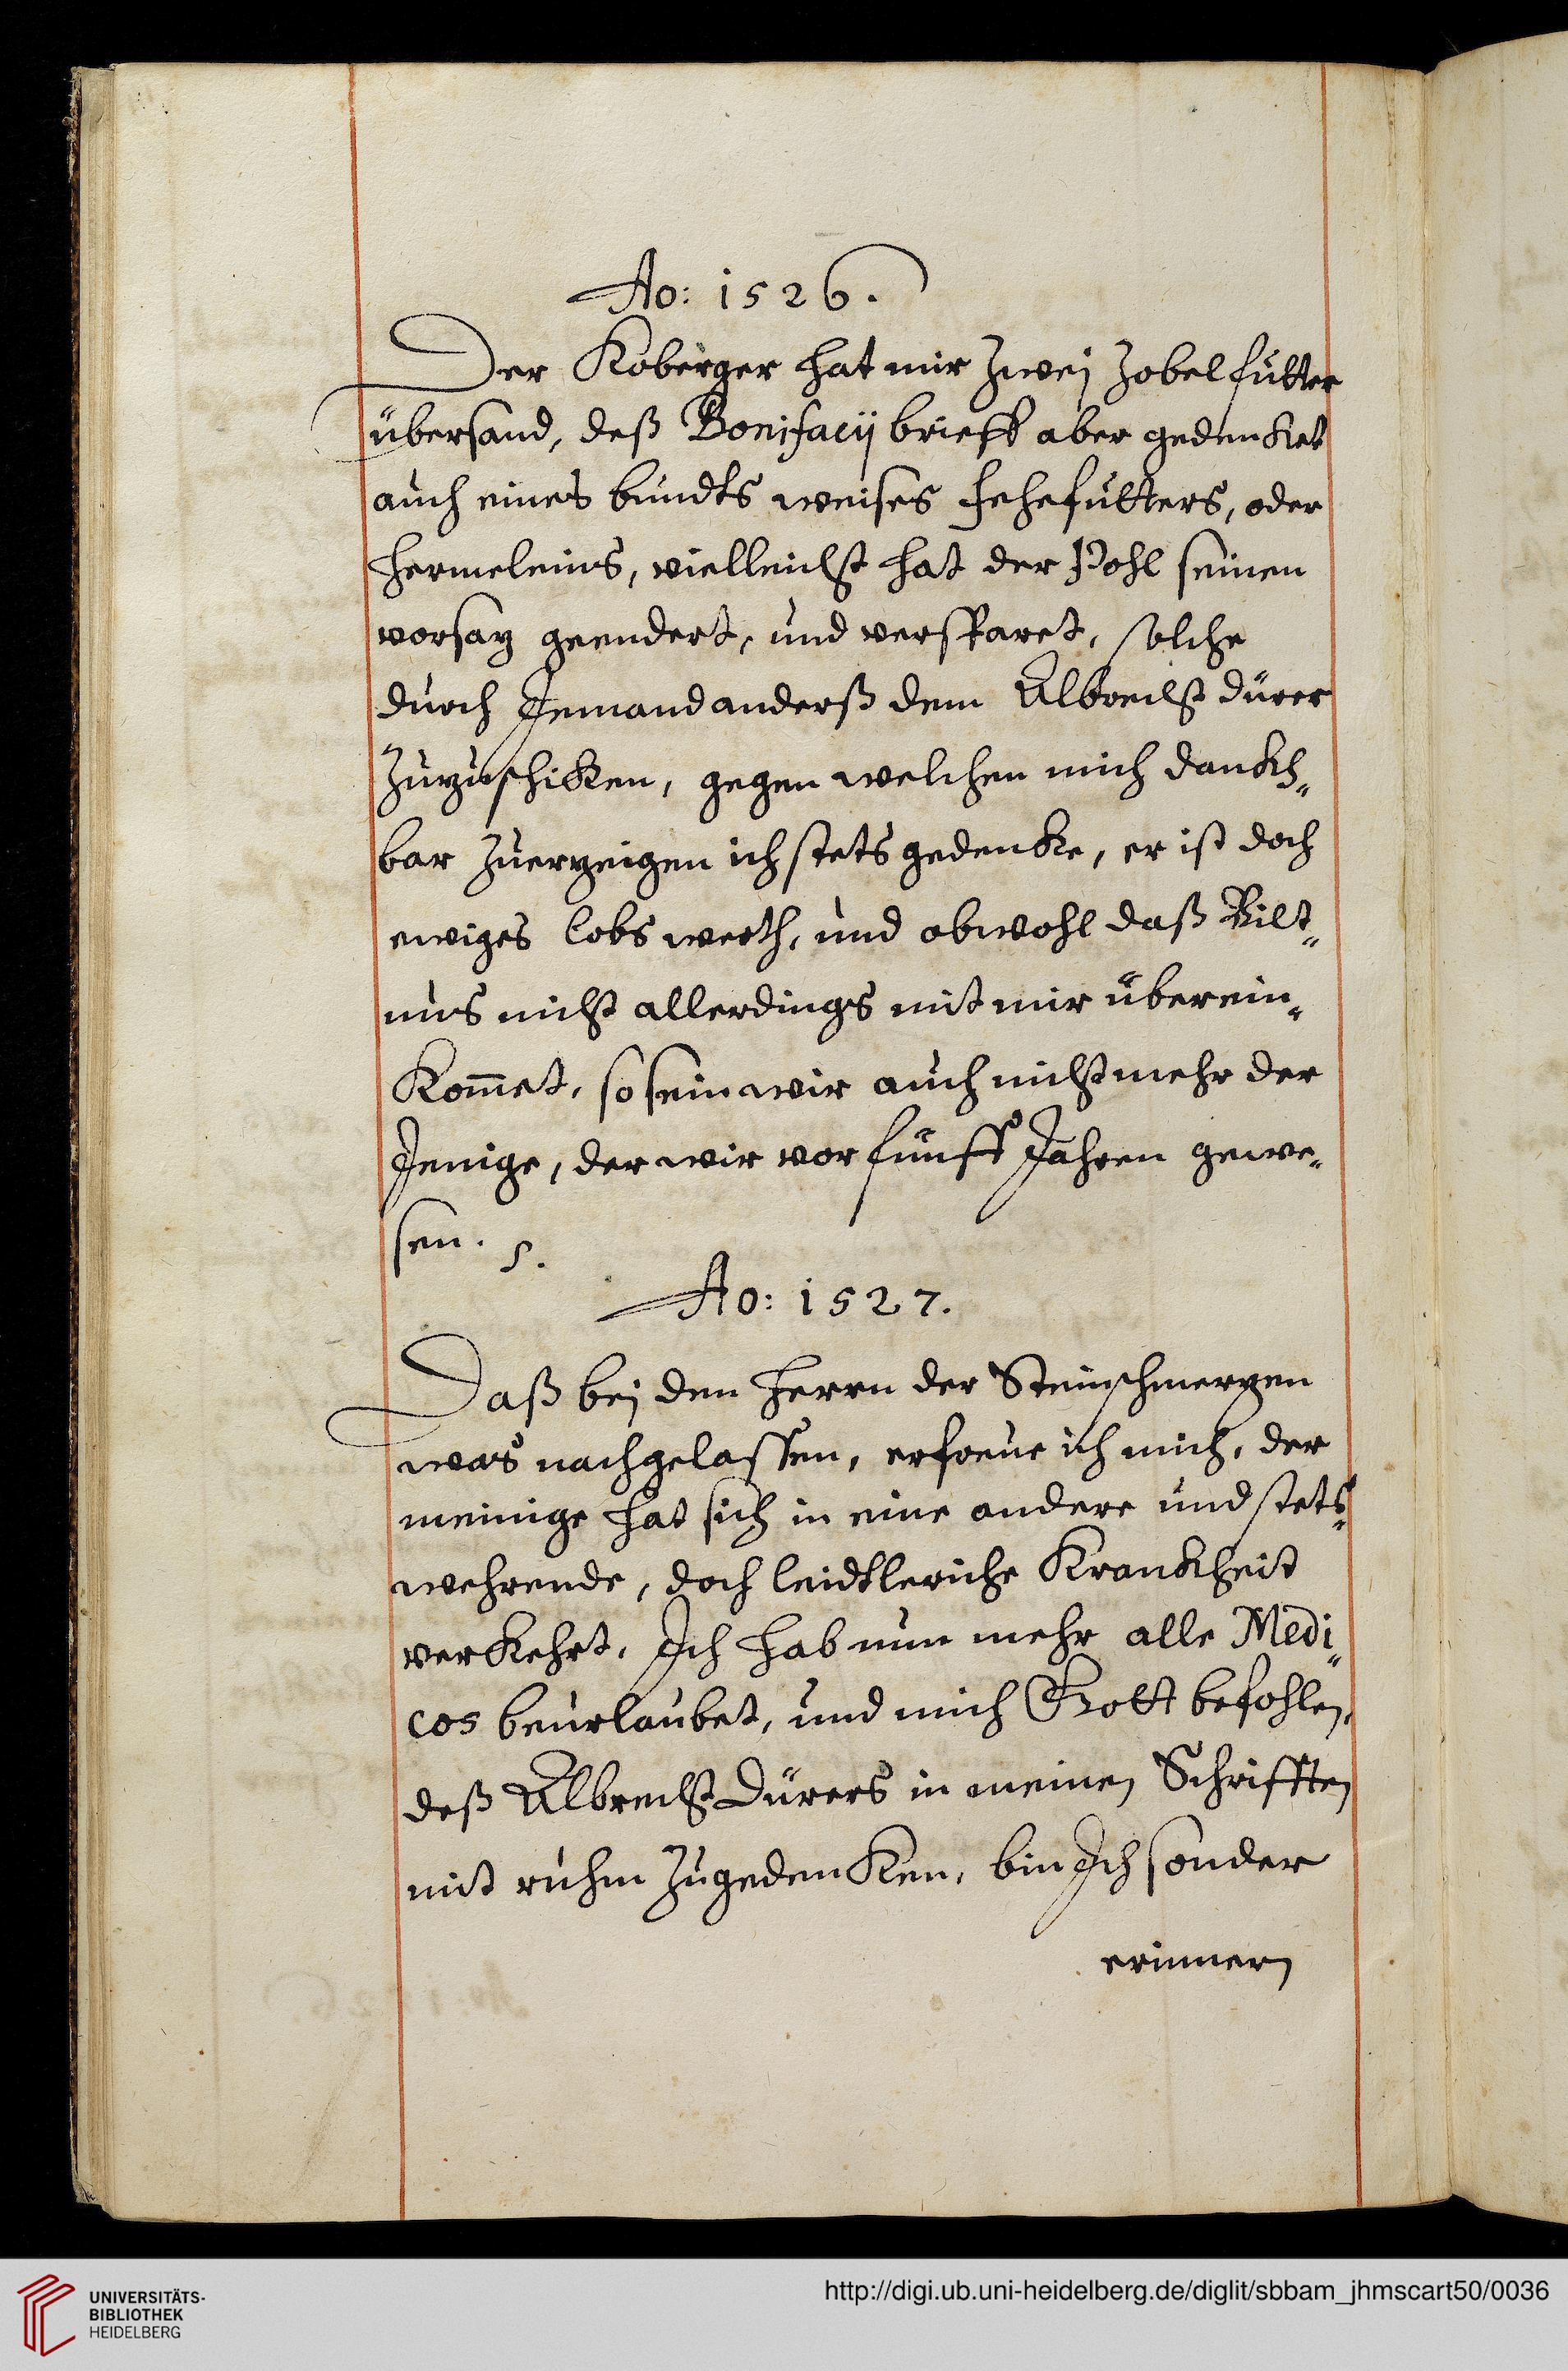 Ao: 1526.
Der Koberger hat mir zwej Zobelfutter
übersand, deß Bonifacij brieff aber gedencket
auch eines bundts weises Fehefutters, oder
Hermeleins, vielleicht hat der Pohl seinen
vorsaz geendert, und versparet, solche
durch Jemand anderß dem Albrecht dürer
zuzuschicken, gegen welchen mich danckh„
bar zuerzeigen ich stets gedencke, er ist doch
ewiges lobs werth, und obwohl daß Bilt„
nus nicht allerdings mit mir überein„
kom̄et, so sein wir auch nicht mehr der
Jenige, der wir vor fünff Jahren gewe„
sen. s.
Ao: 1527.
Daß bej den Herrn der Steinschmerzen
was nachgelassen, erfreue ich mich, der
meinige hat sich in eine andere und stets„
wehrende, doch leidtleriche Kranckheit
verkehrt, Ich hab nun mehr alle Medi„
cos beurlaubet, und mich Gott befohlen,
deß Albrecht Dürers in meinen Schrifften
mit ruhm zugedencken, bin Ich sonder
erinnern
UNIVERSITÄTS-
BIBLIOTHEK
HEIDELBERG
http://digi.ub.uni-heidelberg.de/diglit/sbbam_jhmscart50/0036